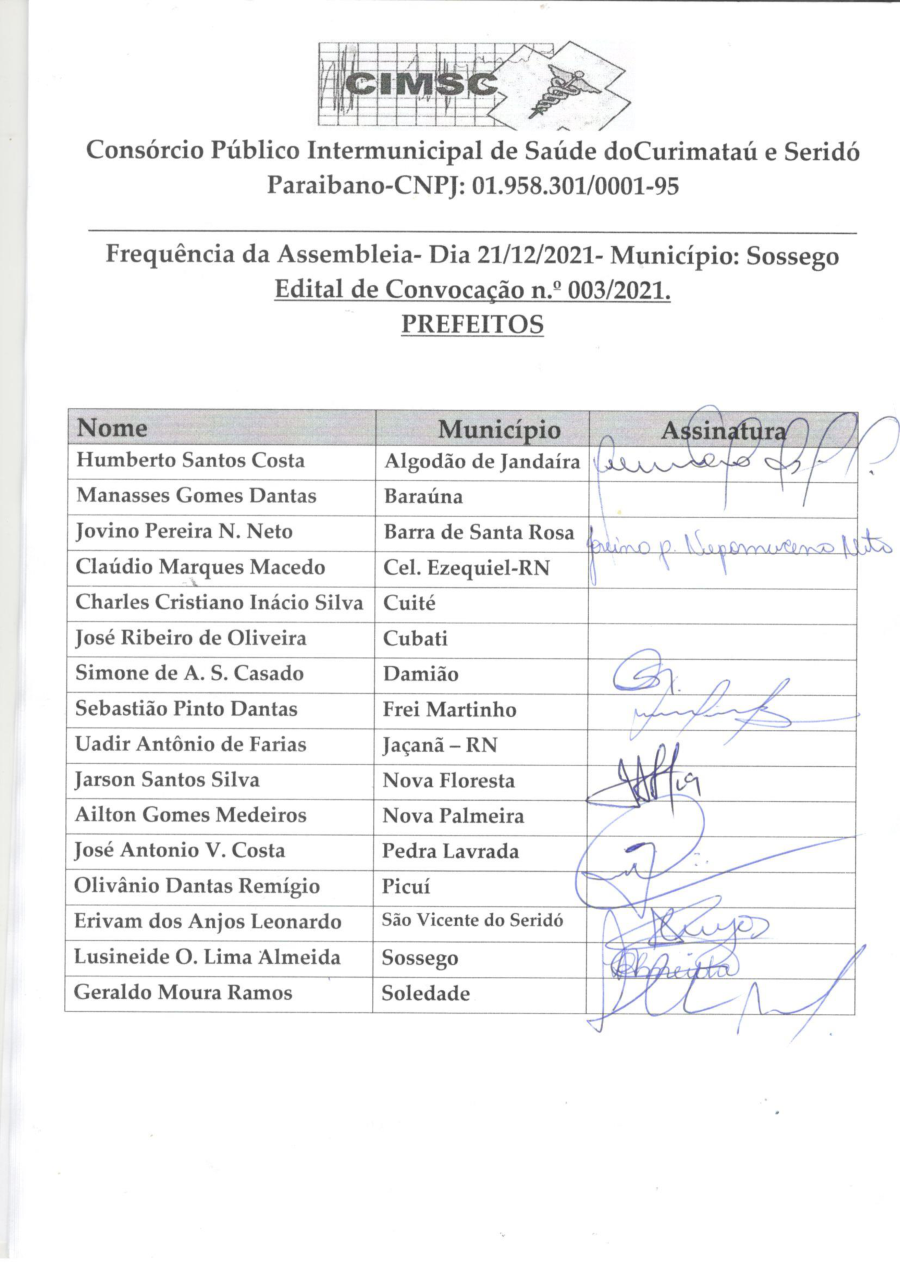 CIMSC
Consórcio Público Intermunicipal de Saúde doCurimataú e Seridó
Paraibano-CNPJ: 01.958.301/0001-95
Frequência da Assembleia- Dia 21/12/2021- Município: Sossego
Edital de Convocação n.º 003/2021.
PREFEITOS
Nome Município Assinatura
Humberto Santos Costa Algodão de Jandaíra
Manasses Gomes Dantas Baraúna
Jovino Pereira N. Neto Barra de Santa Rosa Jovino p. Nepomuceno Neto
Claúdio Marques Macedo Cel. Ezequiel-RN
Charles Cristiano Inácio Silva Cuité
José Ribeiro de Oliveira Cubati
Simone de A. S. Casado Damião
Sebastião Pinto Dantas Frei Martinho
Uadir Antônio de Farias Jaçanã – RN
Jarson Santos Silva Nova Floresta
Ailton Gomes Medeiros Nova Palmeira
José Antonio V. Costa Pedra Lavrada
Olivânio Dantas Remígio Picuí
Erivam dos Anjos Leonardo São Vicente do Seridó
Lusineide O. Lima Almeida Sossego
Geraldo Moura Ramos Soledade